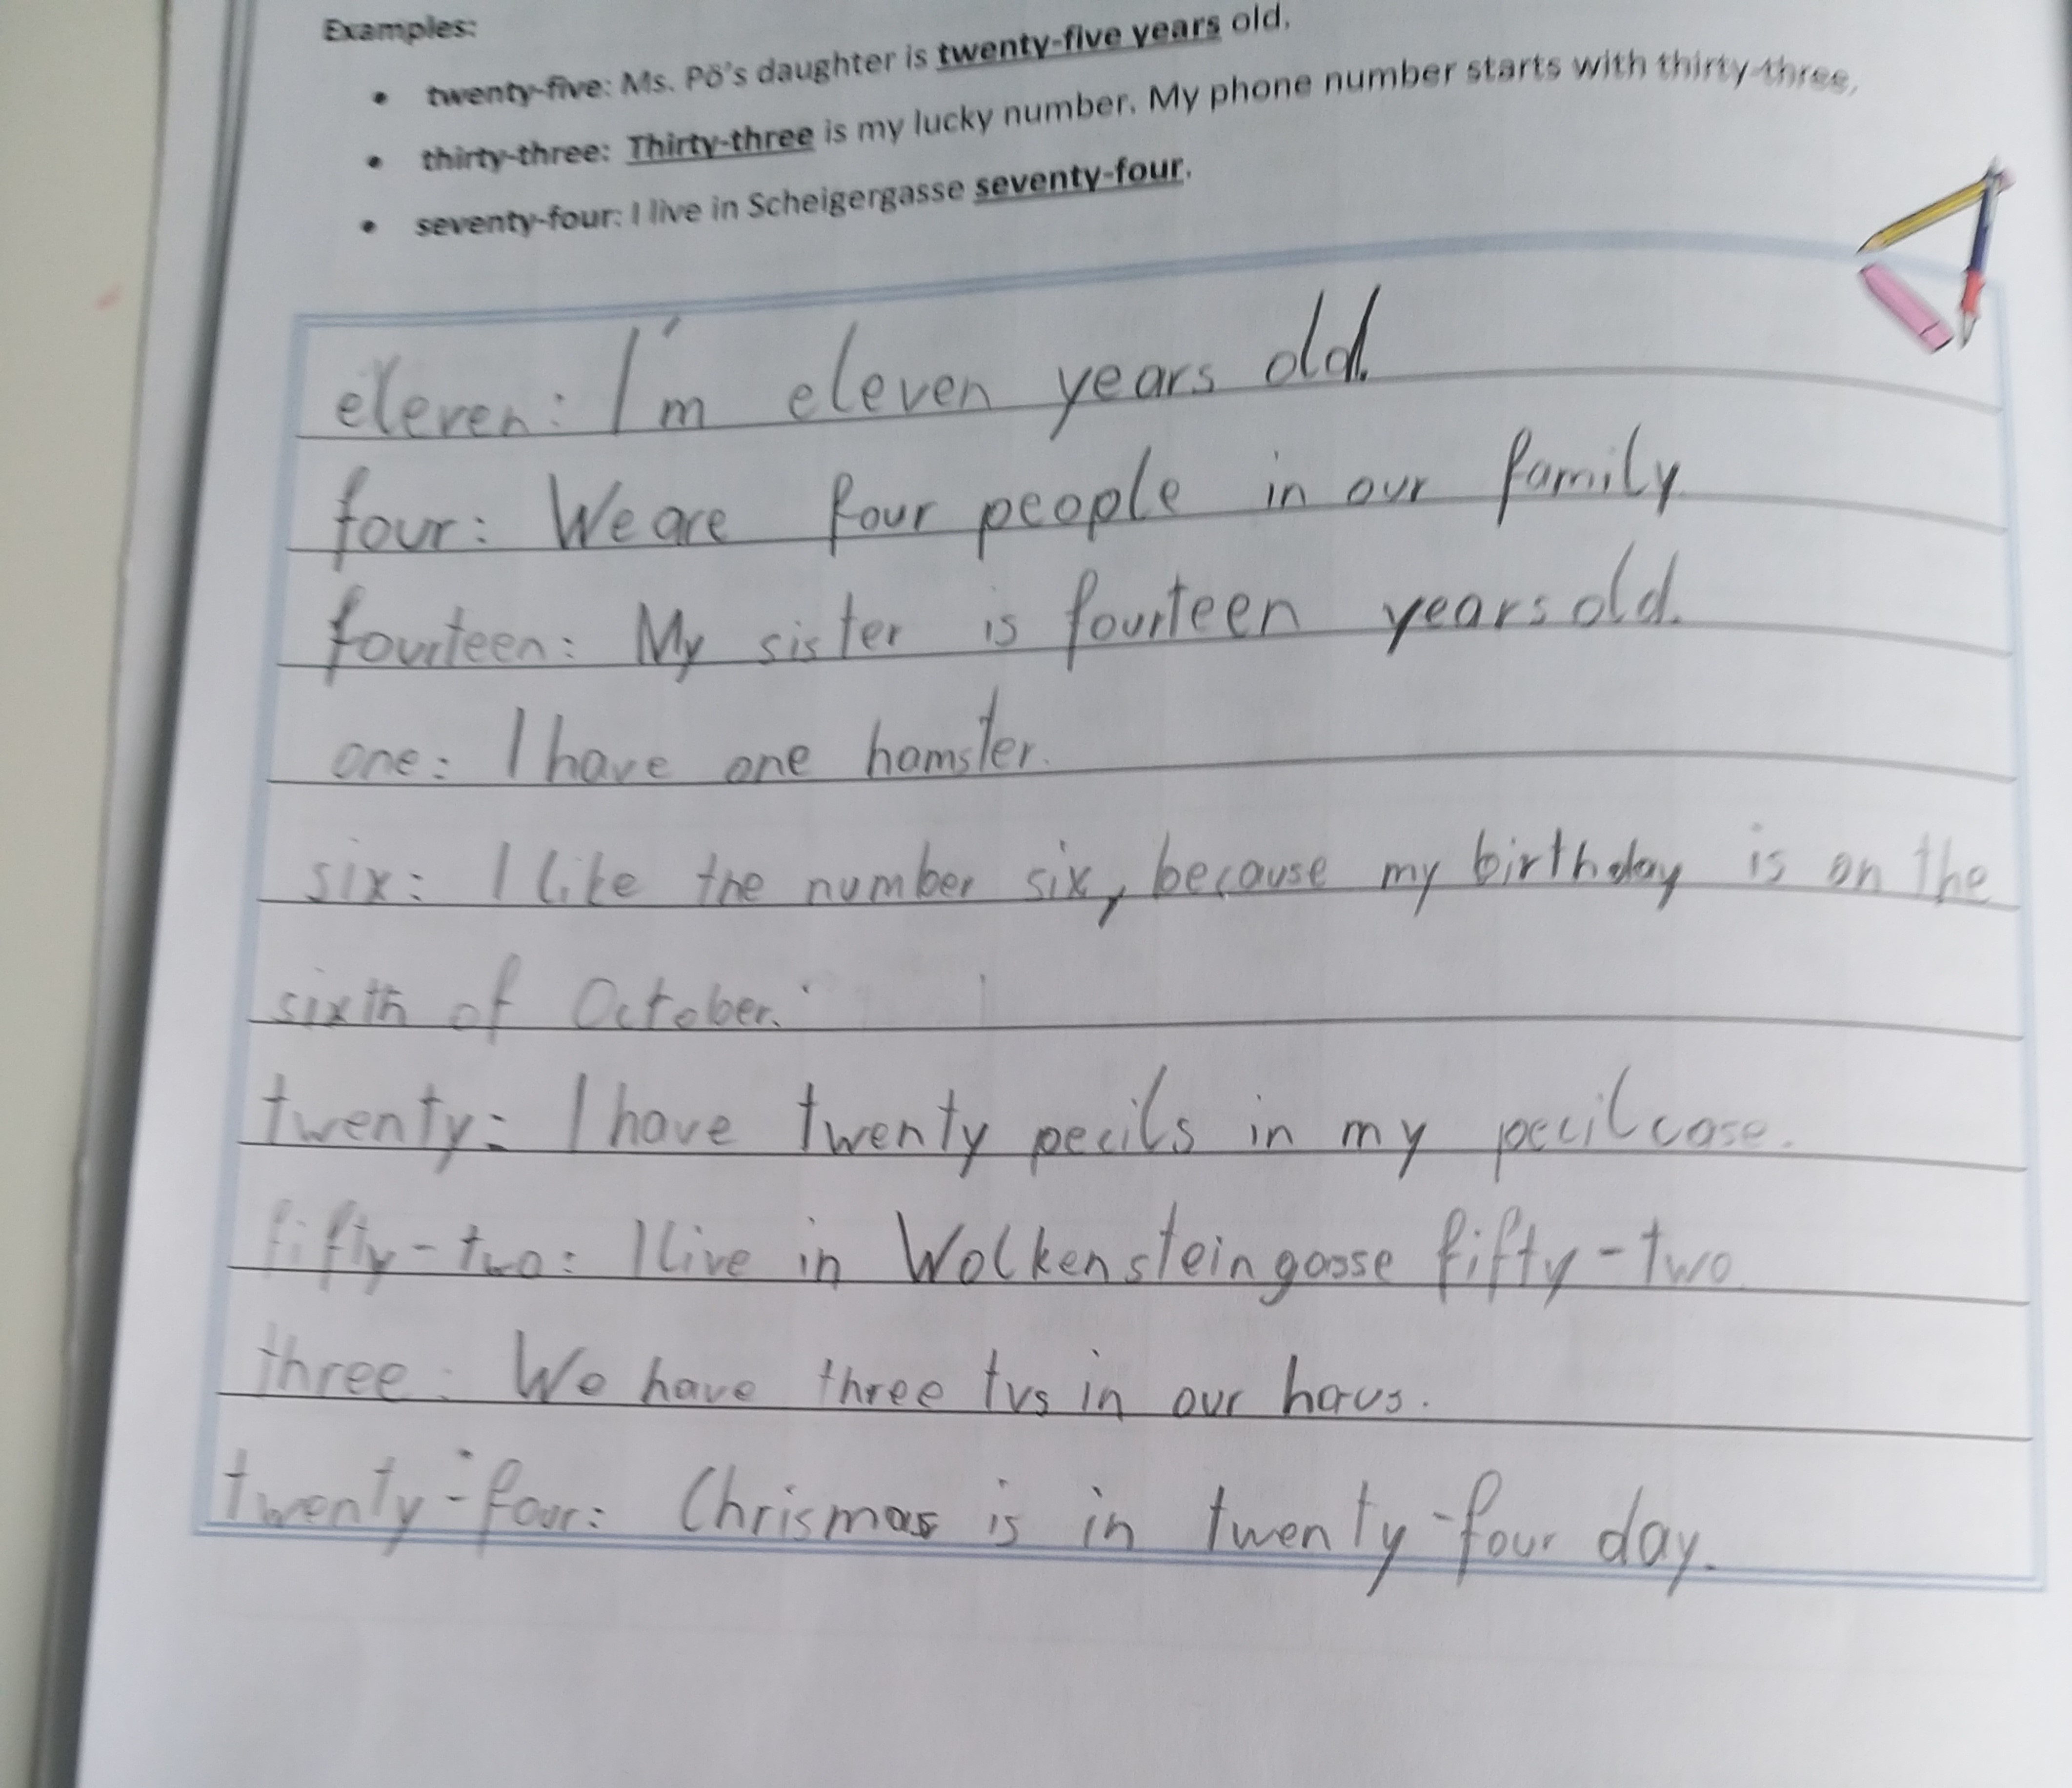 Examples:
• twenty-five: Ms. Pö's daughter is twenty-five years old.
• thirty-three: Thirty-three is my lucky number. My phone number starts with thirty-three.
• seventy-four: I live in Scheigergasse seventy-four.
eleven: I'm eleven years old.
four: We are four people in our family.
fourteen: My sister is fourteen years old.
one: I have one hamster.
six: I like the number six, because my birthday is on the
sixth of October.
twenty: I have twenty pecils in my pecilcase.
fifty-two: I live in Wolkensteingasse fifty-two.
three: We have three tvs in our haus.
twenty-four: Chrismas is in twenty-four day.